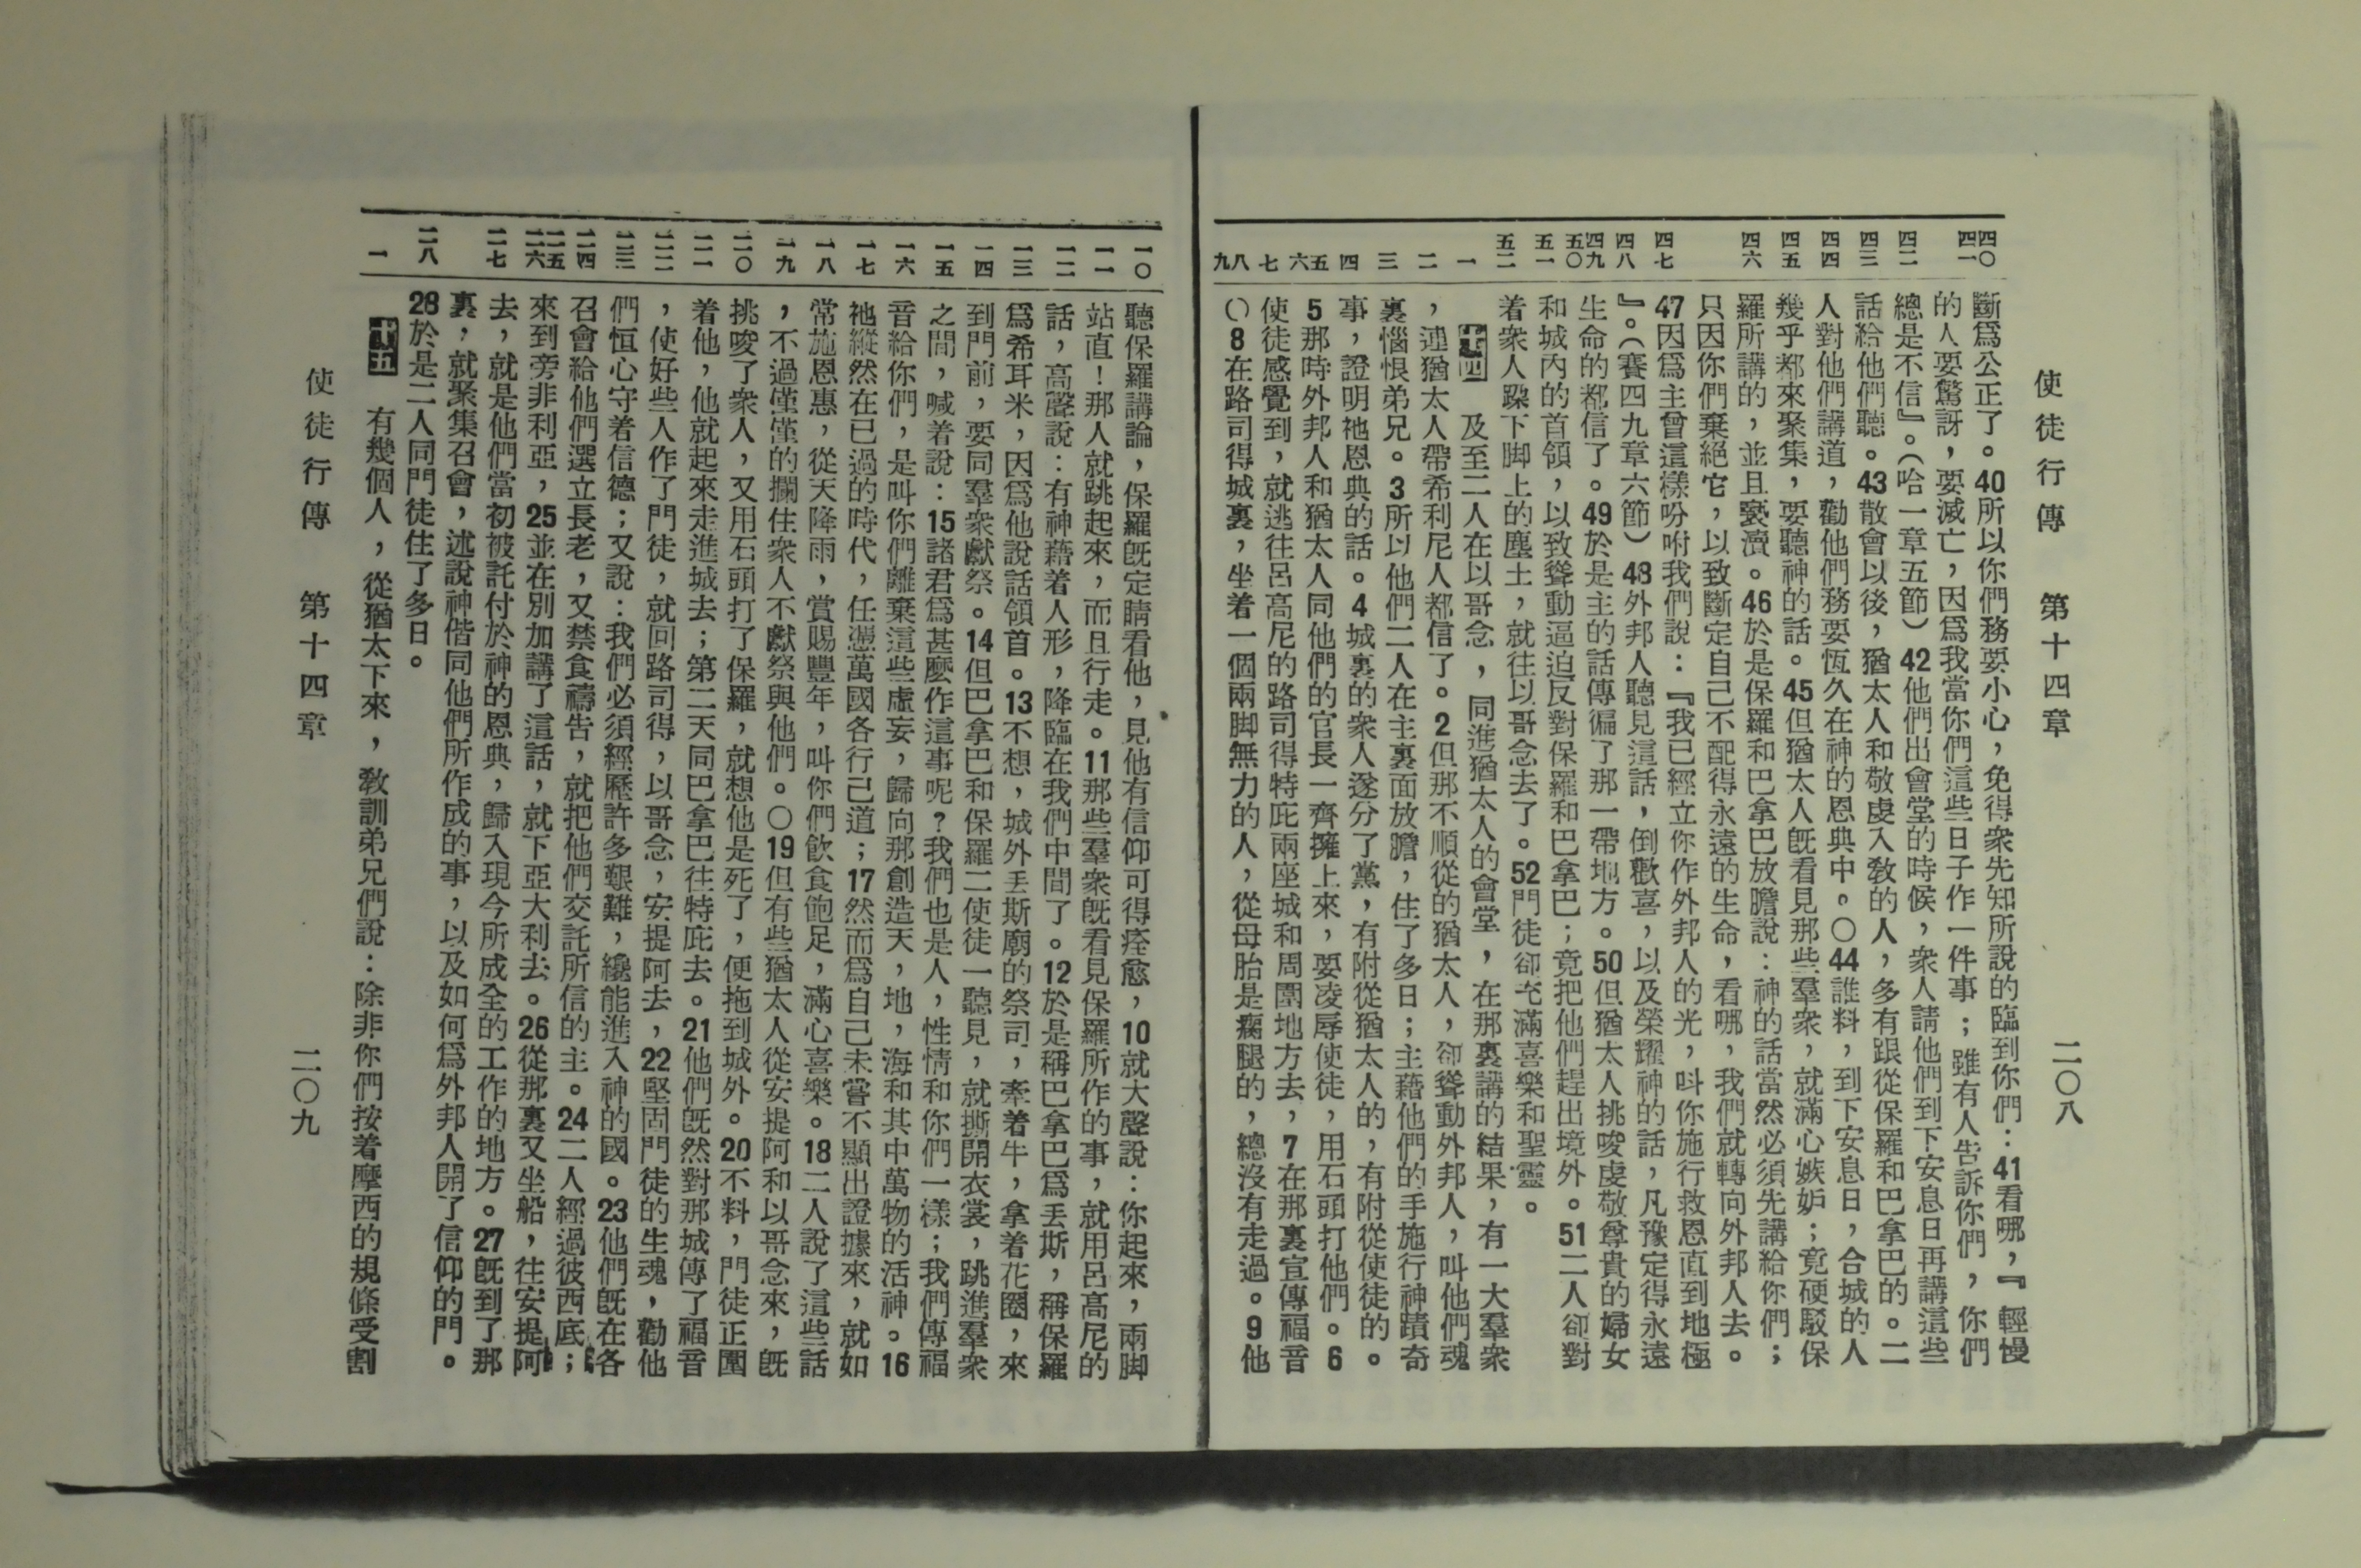 使徒行傳　第十四章　二〇八
四〇 四一 四二 四三 四四 四五 四六 四七 四八 四九 五〇 五一 五二 一 二 三 四 五 六 七 八 九
斷爲公正了。40所以你們務要小心，免得衆先知所說的臨到你們：41看哪，『輕慢
的人要驚訝，要滅亡，因爲我當你們這些日子作一件事；雖有人告訴你們，你們
總是不信』。（哈一章五節）42他們出會堂的時候，衆人請他們到下安息日再講這些
話給他們聽。43散會以後，猶太人和敬虔入敎的人，多有跟從保羅和巴拿巴的。二
人對他們講道，勸他們務要恆久在神的恩典中。〇44誰料，到下安息日，合城的人
幾乎都來聚集，要聽神的話。45但猶太人旣看見那些羣衆，就滿心嫉妒；竟硬駁保
羅所講的，並且褻瀆。46於是保羅和巴拿巴放膽說：神的話當然必須先講給你們；
只因你們棄絕它，以致斷定自己不配得永遠的生命，看哪，我們就轉向外邦人去。
47因爲主曾這樣吩咐我們說：『我已經立你作外邦人的光，叫你施行救恩直到地極
』。（賽四九章六節）48外邦人聽見這話，倒歡喜，以及榮耀神的話，凡豫定得永遠
生命的都信了。49於是主的話傳徧了那一帶地方。50但猶太人挑唆虔敬尊貴的婦女
和城內的首領，以致聳動逼迫反對保羅和巴拿巴；竟把他們趕出境外。51二人卻對
着衆人跺下脚上的塵土，就往以哥念去了。52門徒卻充滿喜樂和聖靈。
十四　及至二人在以哥念，同進猶太人的會堂，在那裏講的結果，有一大羣衆
，連猶太人帶希利尼人都信了。2但那不順從的猶太人，卻聳動外邦人，叫他們魂
裏惱恨弟兄。3所以他們二人在主裏面放膽，住了多日；主藉他們的手施行神蹟奇
事，證明祂恩典的話。4城裏的衆人遂分了黨，有附從猶太人的，有附從使徒的。
5那時外邦人和猶太人同他們的官長一齊擁上來，要凌辱使徒，用石頭打他們。6
使徒感覺到，就逃往呂高尼的路司得特庇兩座城和周圍地方去，7在那裏宣傳福音
〇8在路司得城裏，坐着一個兩脚無力的人，從母胎是瘸腿的，總沒有走過。9他
一〇 一一 一二 一三 一四 一五 一六 一七 一八 一九 二〇 二一 二二 二三 二四 二五 二六 二七 二八 一
聽保羅講論，保羅旣定睛看他，見他有信仰可得痊愈，10就大聲說：你起來，兩脚
站直！那人就跳起來，而且行走。11那些羣衆旣看見保羅所作的事，就用呂高尼的
話，高聲說：有神藉着人形，降臨在我們中間了。12於是稱巴拿巴爲丟斯，稱保羅
爲希耳米，因爲他說話領首。13不想，城外丟斯廟的祭司，牽着牛，拿着花圈，來
到門前，要同羣衆獻祭。14但巴拿巴和保羅二使徒一聽見，就撕開衣裳，跳進羣衆
之間，喊着說：15諸君爲甚麼作這事呢？我們也是人，性情和你們一樣；我們傳福
音給你們，是叫你們離棄這些虛妄，歸向那創造天，地，海和其中萬物的活神。16
祂縱然在已過的時代，任憑萬國各行己道；17然而爲自己未嘗不顯出證據來，就如
常施恩惠，從天降雨，賞賜豐年，叫你們飲食飽足，滿心喜樂。18二人說了這些話
，不過僅僅的攔住衆人不獻祭與他們。〇19但有些猶太人從安提阿和以哥念來，旣
挑唆了衆人，又用石頭打了保羅，就想他是死了，便拖到城外。20不料，門徒正圍
着他，他就起來走進城去；第二天同巴拿巴往特庇去。21他們旣然對那城傳了福音
，使好些人作了門徒，就回路司得，以哥念，安提阿去，22堅固門徒的生魂，勸他
們恒心守着信德；又說：我們必須經歷許多艱難，纔能進入神的國。23他們旣在各
召會給他們選立長老，又禁食禱告，就把他們交託所信的主。24二人經過彼西底；
來到旁非利亞，25並在別加講了這話，就下亞大利去。26從那裏又坐船，往安提阿
去，就是他們當初被託付於神的恩典，歸入現今所成全的工作的地方。27旣到了那
裏，就聚集召會，述說神偕同他們所作成的事，以及如何爲外邦人開了信仰的門。
28於是二人同門徒住了多日。
十五　有幾個人，從猶太下來，敎訓弟兄們說：除非你們按着摩西的規條受割
使徒行傳　第十四章　二〇九